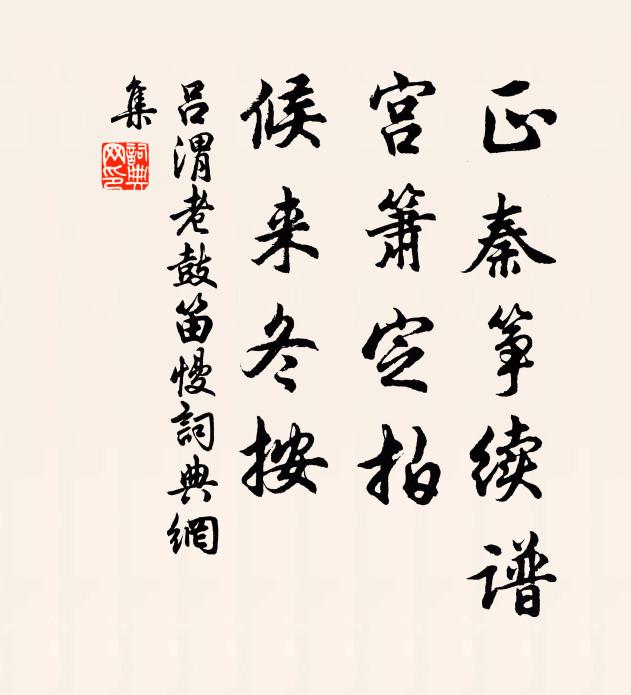 正秦筝续谱
宫箫定拍
候来冬按
吕渭老鼓笛慢詞典網
集
詞典
网印